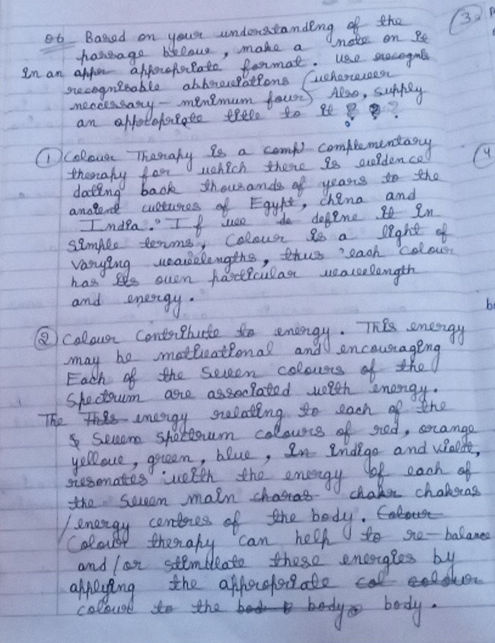 Q6 Based on your understanding of the
passage below, make a note on it
in an appr appropriate format. use recogni
recogniseable abbreviations (wherever
necessary - minimum four) Also, supply
an appropriate title to it ? ? ?
① Colour Therapy is a compl complementary
therapy for which there is evidence
dating back thousands of years to the
ancient cultures of Egypt, China and
India." If we do define it in
simple terms, Colour is a light of
varying wavelengths, thus each colour
has its own particular wavelength
and energy.
② Colour Contribute to energy. This energy
may be motivational and encouraging
Each of the Seven colours of the
Spectrum are associated with energy.
The This energy relating to each of the
Seven spectrum colours of red, orange
yellow, green, blue, in indigo and violet,
resonates with the energy of each of
the Seven main charas chakr chakras
/energy centres of the body. Colour
Colour therapy can help to re-balance
and/or stimulate these energies by
applying the appropriate col colour
colour to the bod body body.
③
④